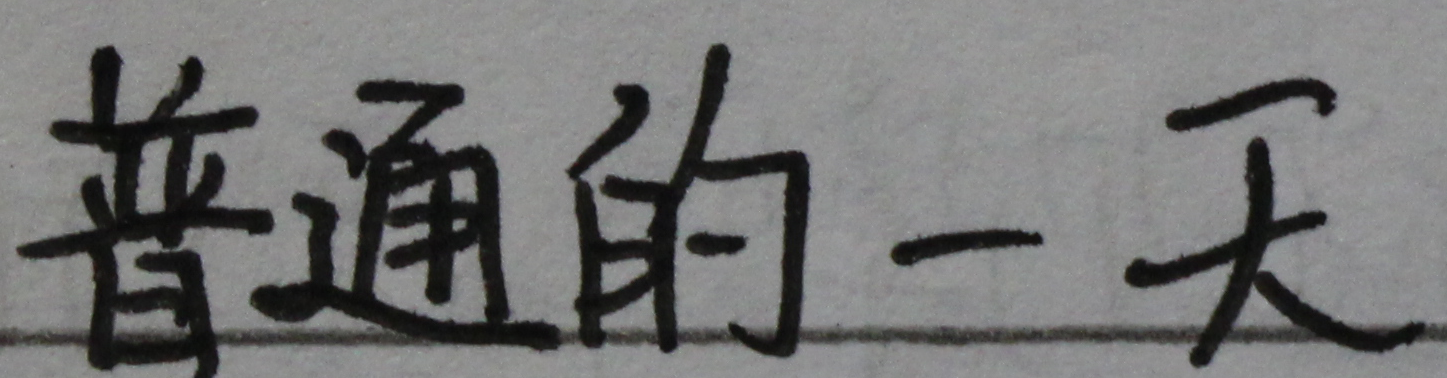 普通的一天